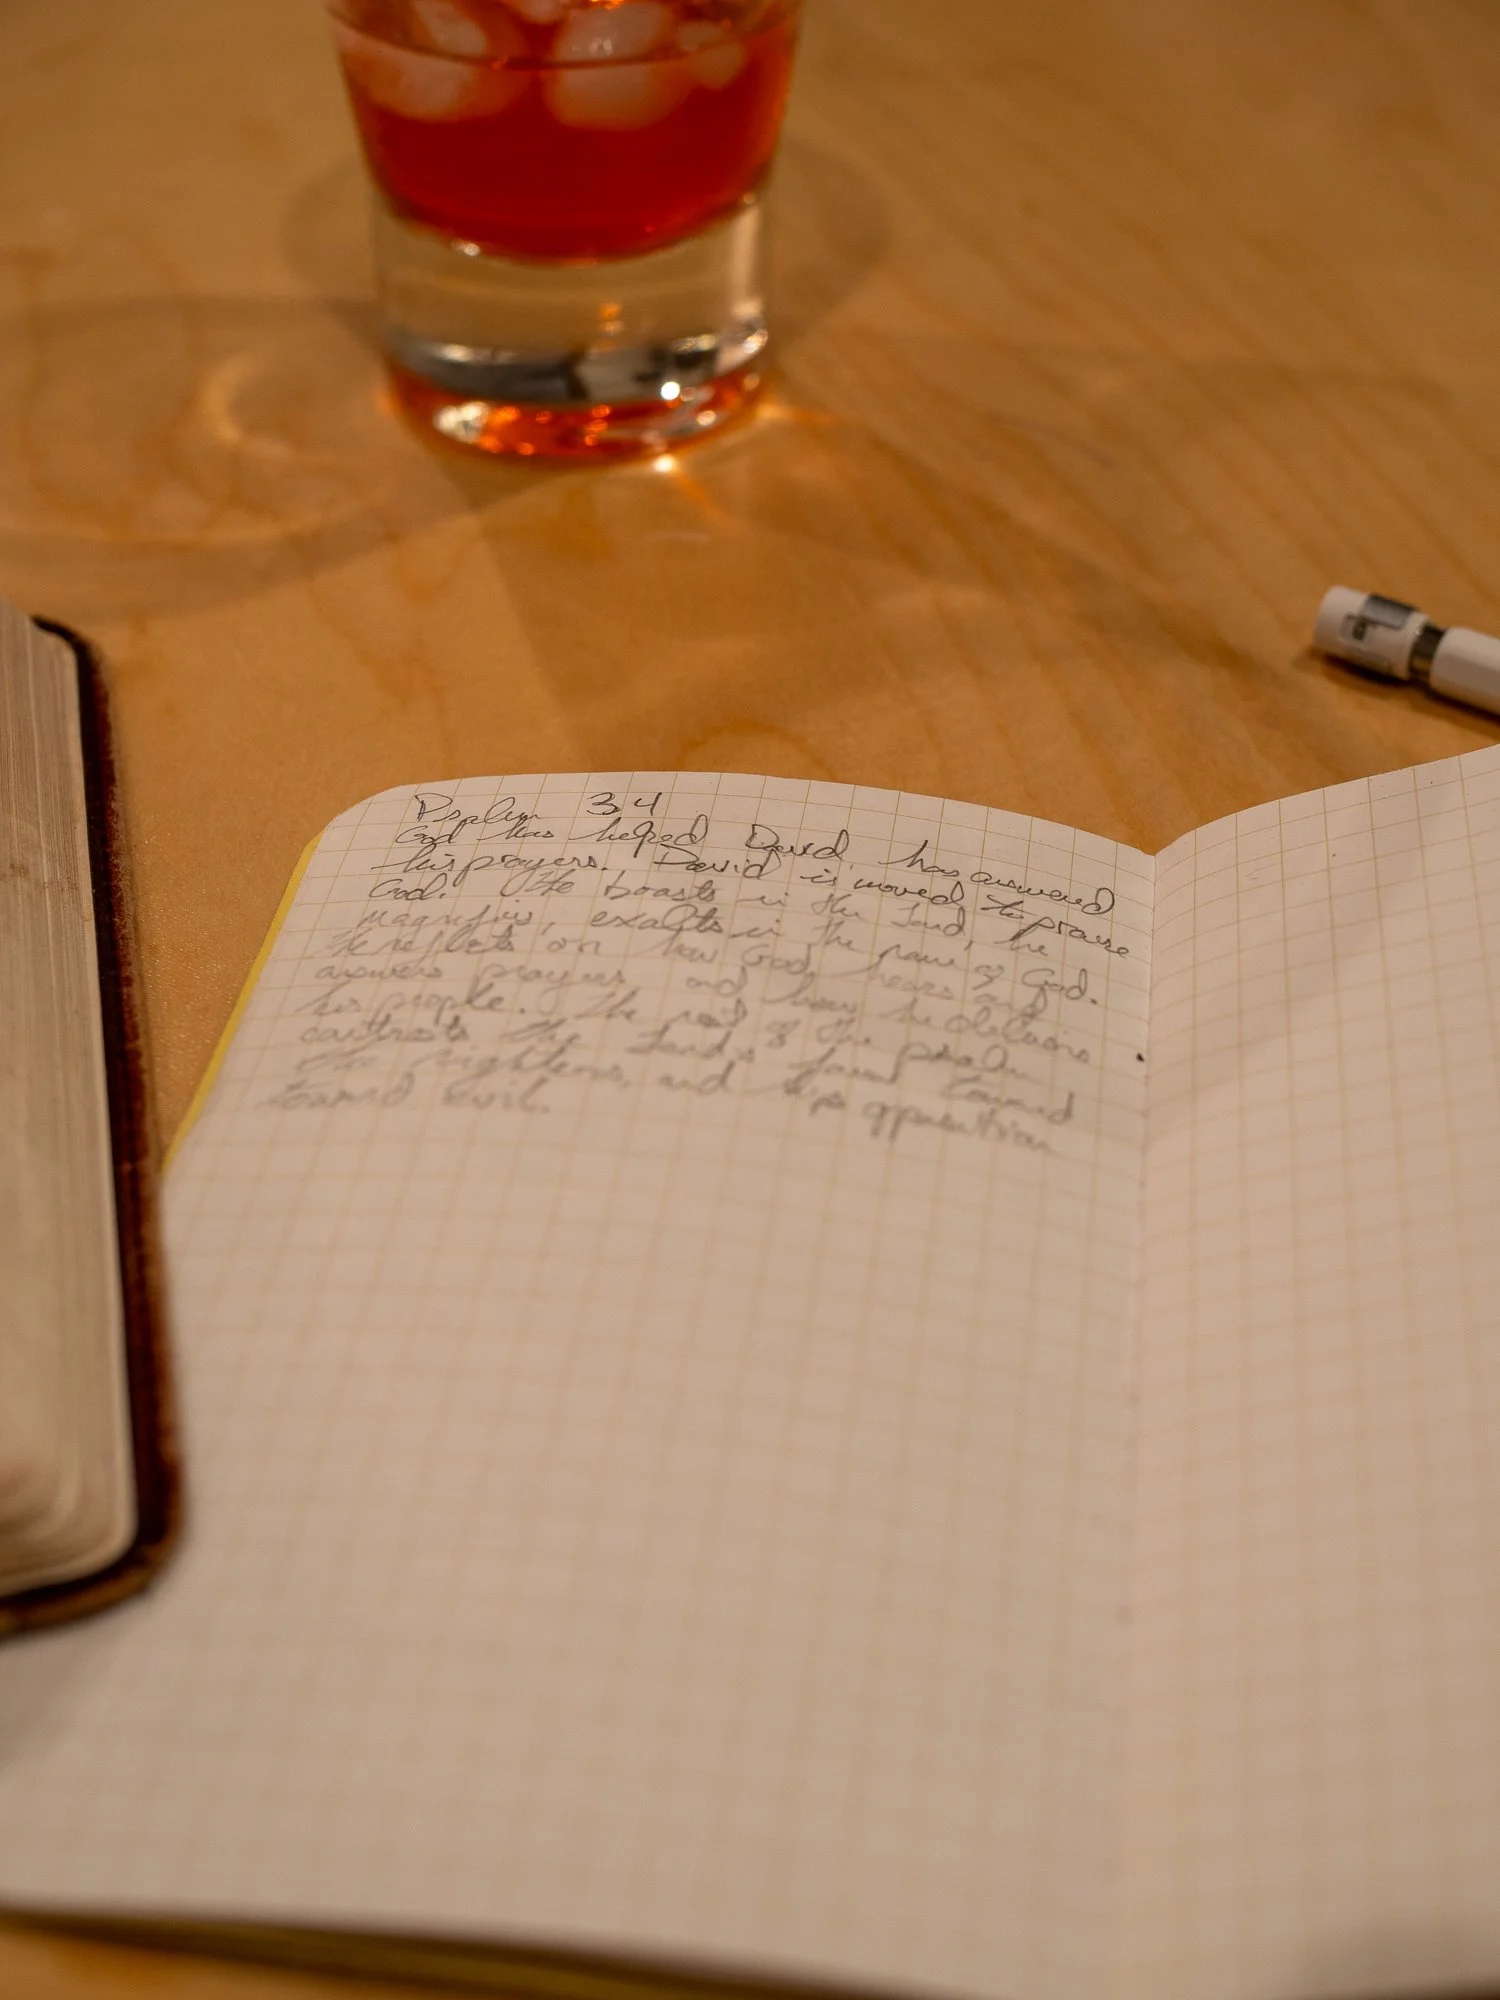 Psalm 34
God has helped David, has answered
his prayers. David is moved to praise
God. He boasts in the Lord, he
magnifies, exalts in the name of God.
He reflects on how God hears and
answers prayers and how he delivers
his people. The rest of the psalm
contrasts the Lord's favor toward
the righteous, and his opposition
toward evil.